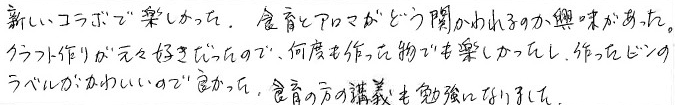 新しいコラボで楽しかった. 食育とアロマがどう関かわれるのか興味があった。
クラフト作りが元々好きだったので、何度も作った物でも楽しかったし、作ったビンの
ラベルがかわいいので良かった. 食育の方の講義も勉強になりました.